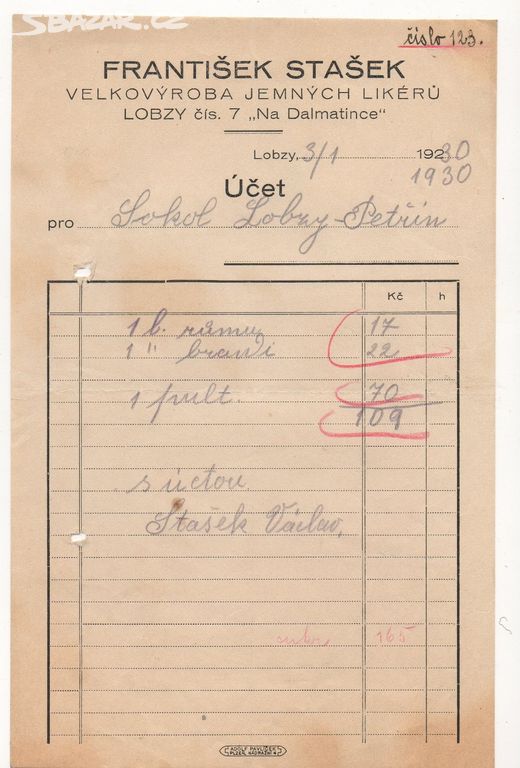 SBAZAR.CZ
číslo 123.
FRANTIŠEK STAŠEK
VELKOVÝROBA JEMNÝCH LIKÉRŮ
LOBZY čís. 7 „Na Dalmatince“
Lobzy, 3/1 1930
1930
Účet
pro Sokol Lobzy-Petřín
Kč h
1 l. rumu 17
1 " brandi 22
1 pult. 70
109
s úctou
Stašek Václav.
165
ADOLF PAVLÍČEK
PLZEŇ, NÁDRAŽNÍ